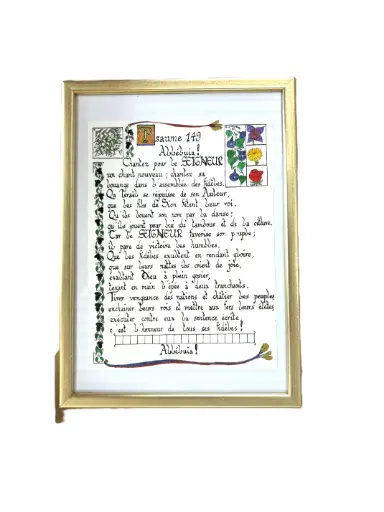 Psaume 149
Alleluia!
Chantez pour le SEIGNEUR
un chant nouveau; chantez sa
louange dans l'assemblée des fidèles.
Qu'Israël se réjouisse de son Auteur,
que les fils de Sion fêtent leur roi.
Qu'ils louent son nom par la danse;
qu'ils jouent pour lui du tambour et de la cithare.
Car le SEIGNEUR favorise son peuple;
il pare de victoire les humbles.
Que les fidèles exultent en rendant gloire,
que sur leurs nattes ils crient de joie,
exaltant Dieu à plein gosier,
tenant en main l'épée à deux tranchants.
Tirer vengeance des nations et châtier les peuples,
enchaîner leurs rois et mettre aux fers leurs élites,
exécuter contre eux la sentence écrite,
c'est l'honneur de tous ses fidèles!
Alleluia!